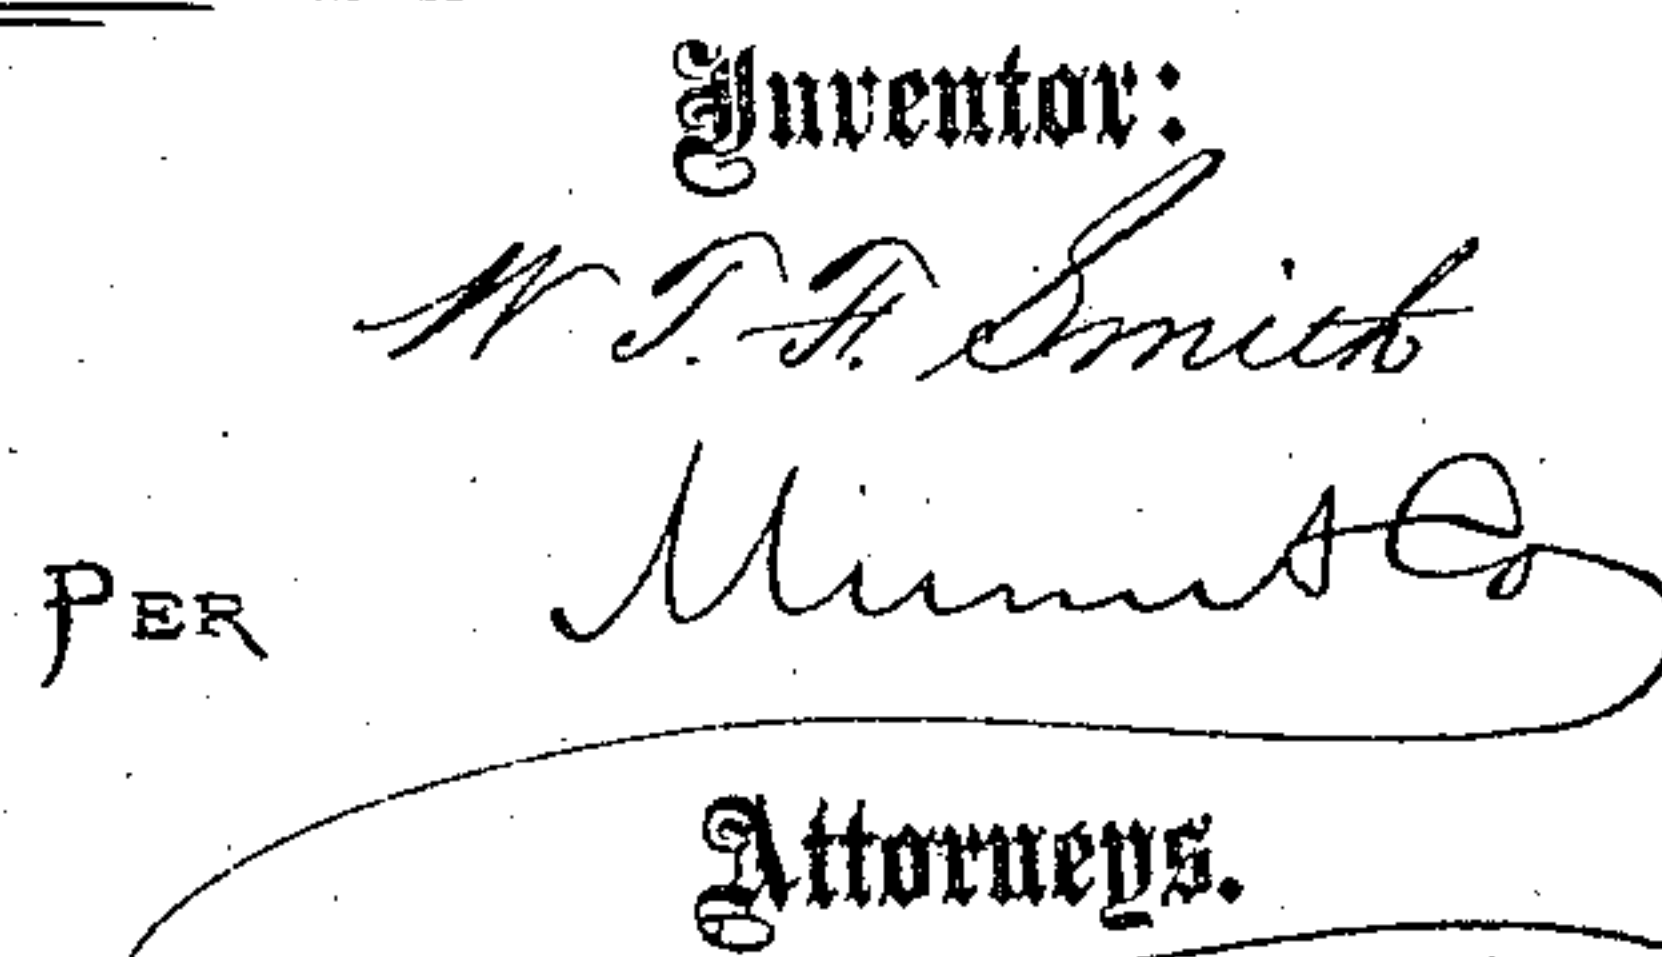 Inventor:
W. T. F. Smith
PER Munn & Co
Attorneys.